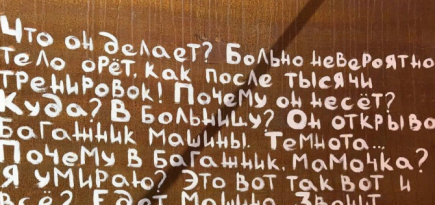 Что он делает? Больно невероятно
тело орёт, как после тысячи
тренировок! Почему он несёт?
Куда? В больницу? Он открыво
багажник машины. Темнота...
Почему в багажник, мамочка?
Я умираю? Это вот так вот и
всё? Едет машина. Звонит